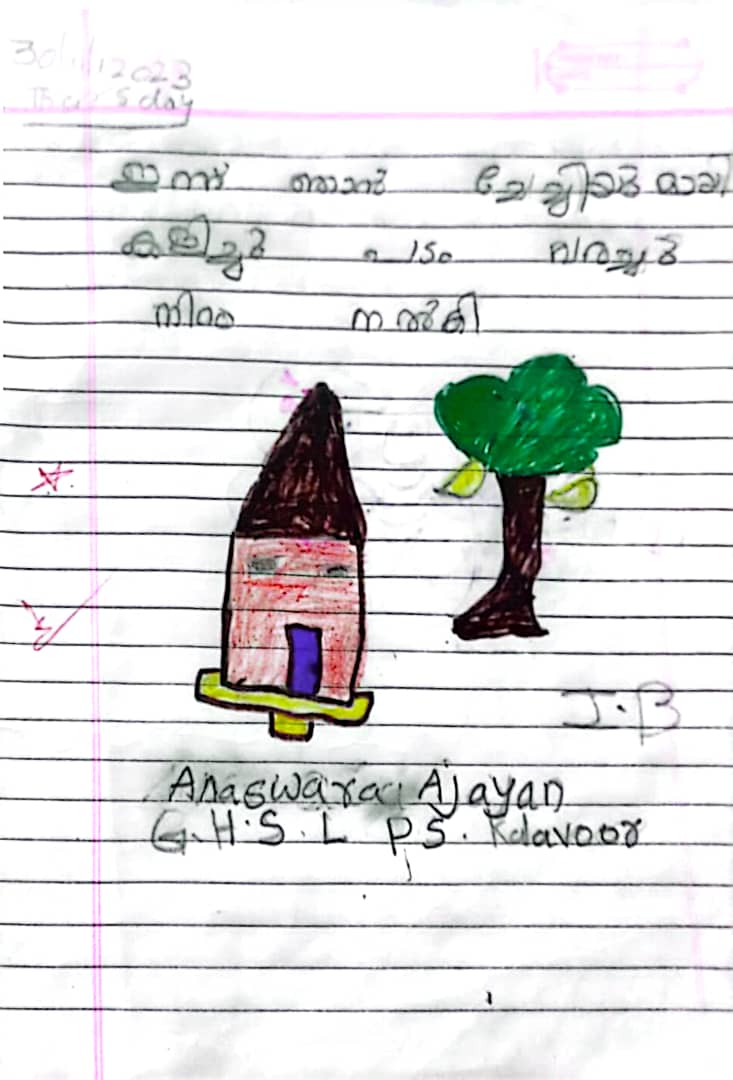 30/11/2023
Thursday
ഇന്ന് ഞാൻ ചേച്ചിയുമായി
കളിച്ചു പടം വരച്ചു
നിറം നൽകി
I.B
Anaswara Ajayan
G.H.S.L P.S. Kalavoor